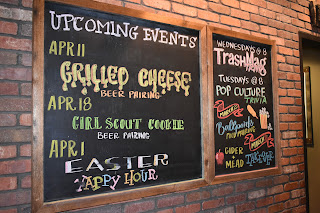 UPCOMING EVENTS
APR 11
GRILLED CHEESE
BEER PAIRING
APR.18
GIRL SCOUT COOKIE
BEER PAIRING
APR 1
EASTER
'APPY HOUR
WEDNESDAYS @ 8
TrashMag
TUESDAYS @ 8
POP CULTURE
TRIVIA
MARCH
Ballpark
FOOD PAIRING
MARCH
CIDER +
MEAD
TAKEOVER